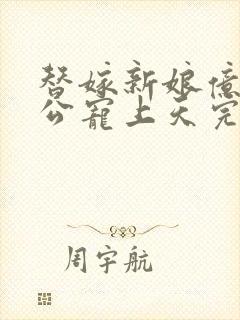 替嫁新娘亿
公宠上天完
周宇航